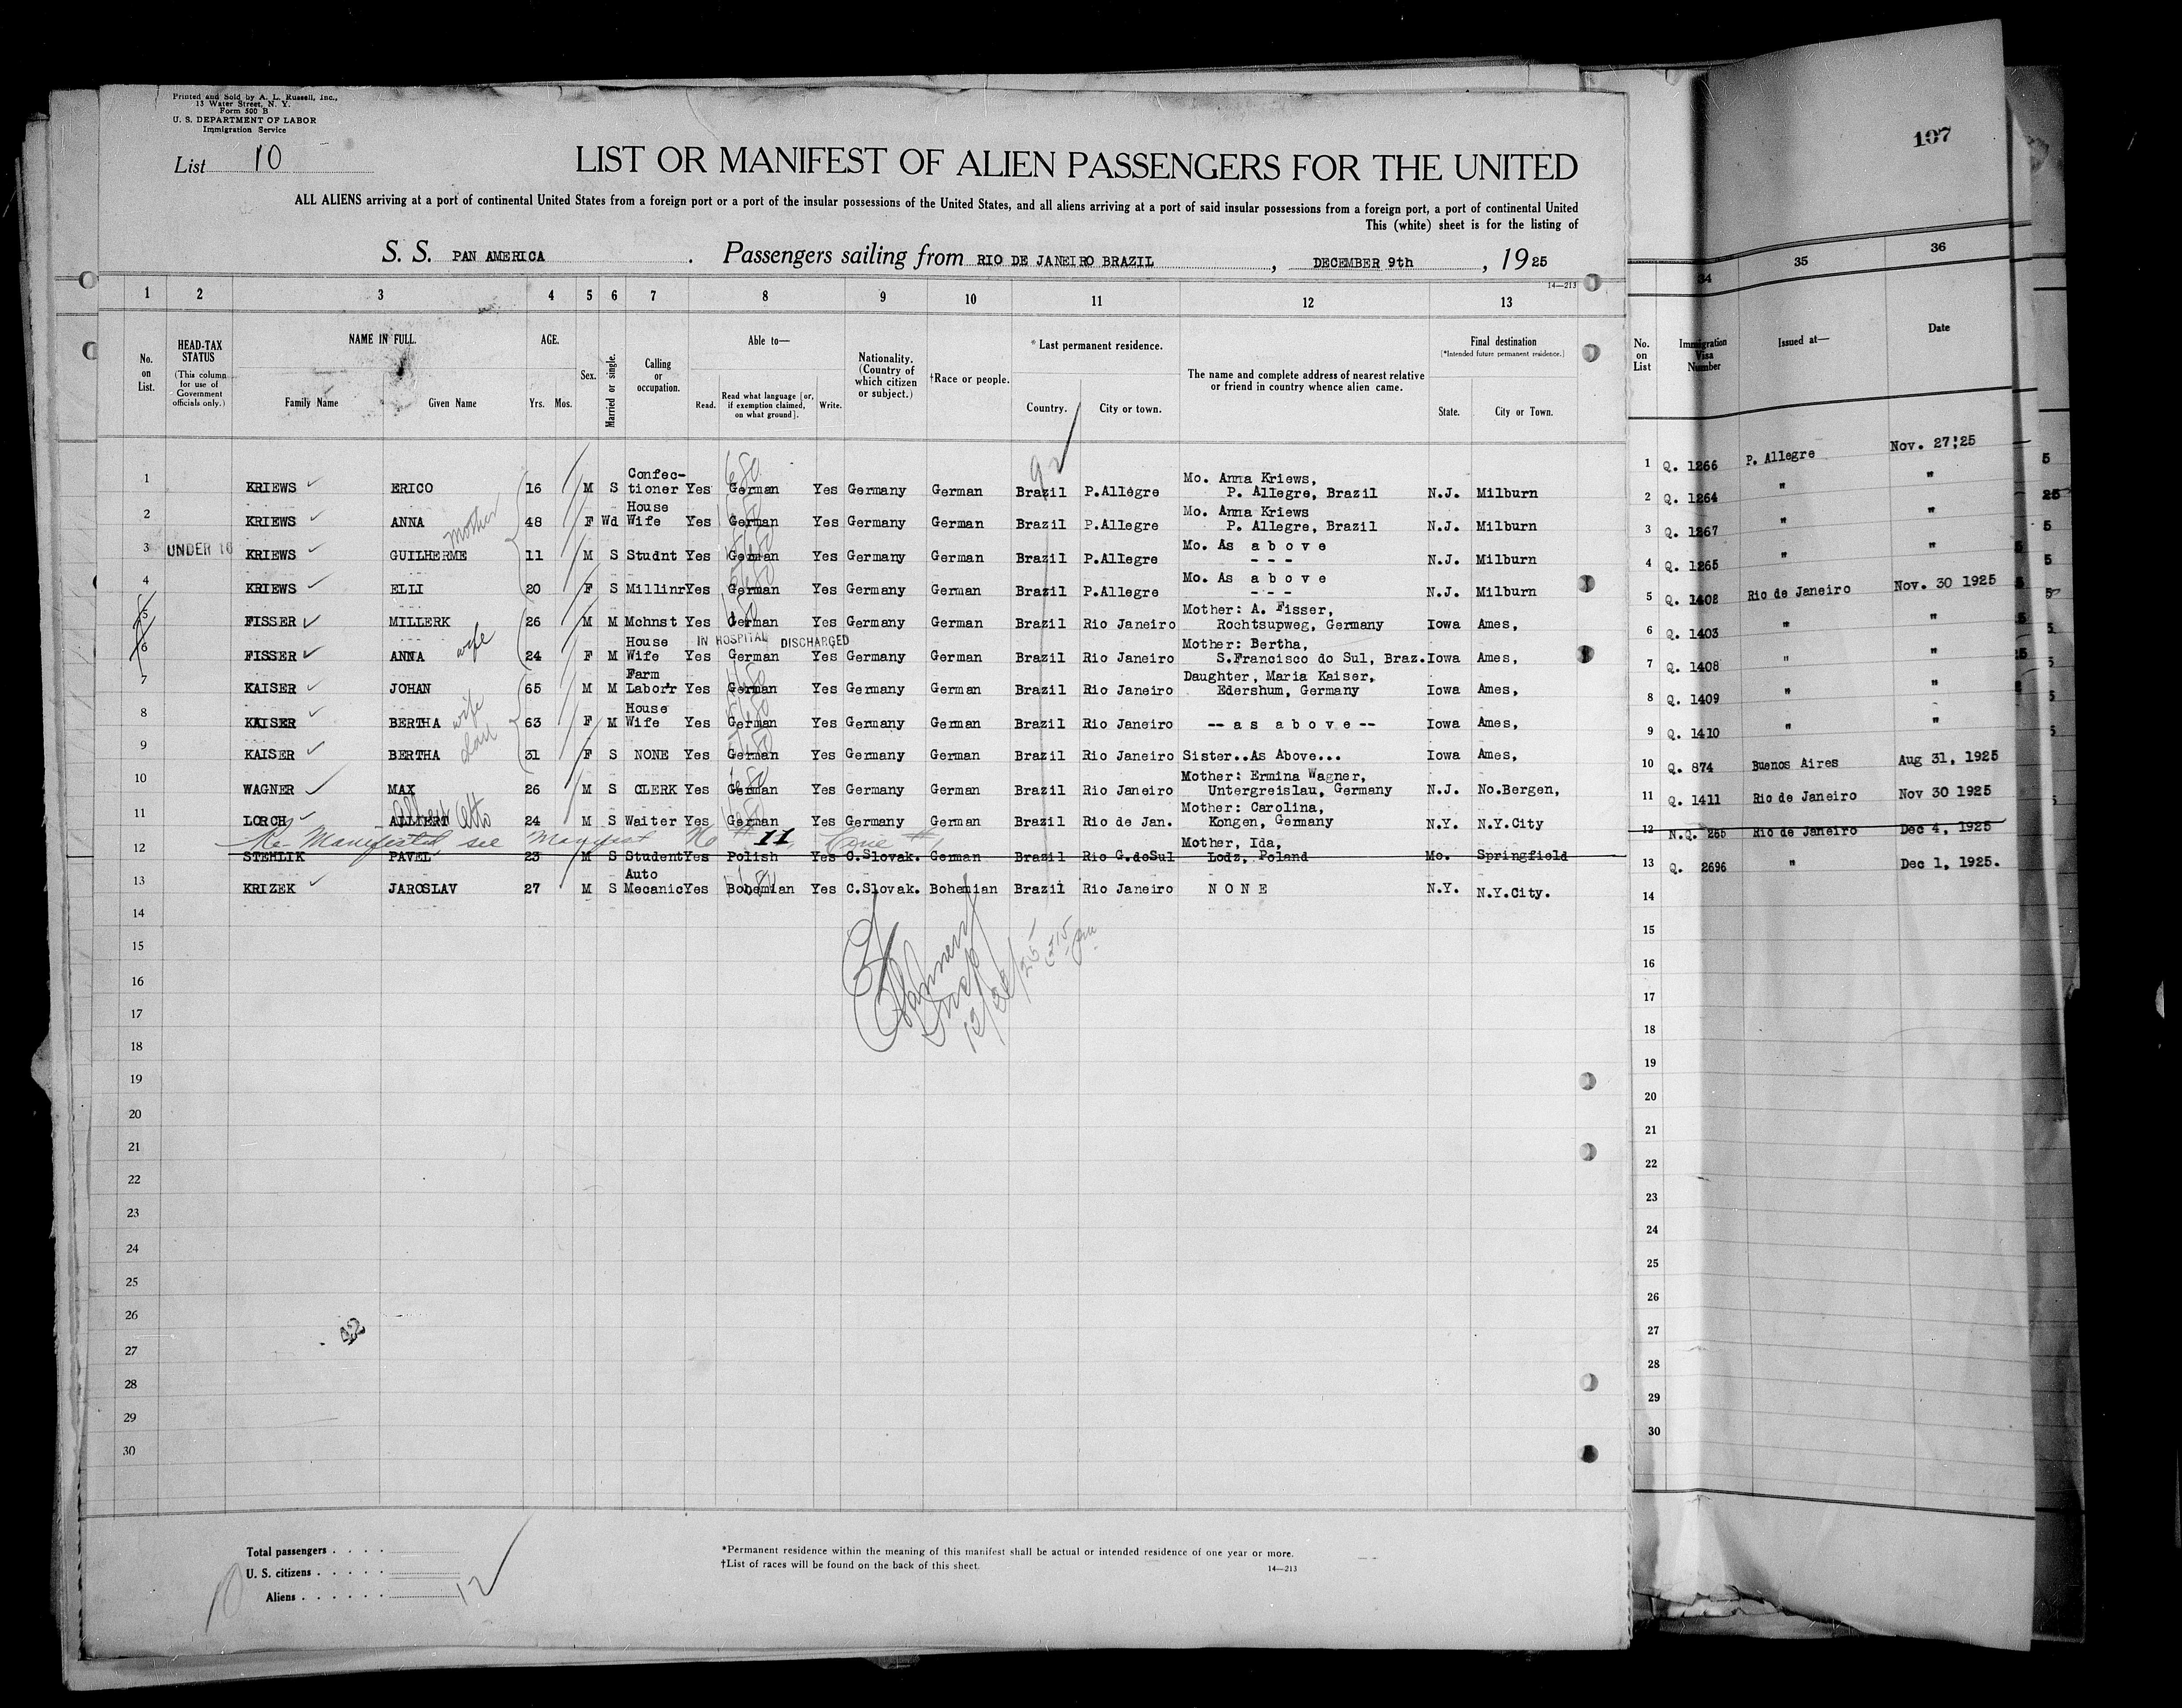 Printed and Sold by A. L. Russell, Inc.,
13 Water Street, N. Y.
Form 500 B
U. S. DEPARTMENT OF LABOR
Immigration Service
107
List 10
LIST OR MANIFEST OF ALIEN PASSENGERS FOR THE UNITED
ALL ALIENS arriving at a port of continental United States from a foreign port or a port of the insular possessions of the United States, and all aliens arriving at a port of said insular possessions from a foreign port, a port of continental United
This (white) sheet is for the listing of
S. S. PAN AMERICA . Passengers sailing from RIO DE JANEIRO BRAZIL , DECEMBER 9th , 1925
14—213
1 2 3 4 5 6 7 8 9 10 11 12 13 34 35 36
No. on List.
HEAD-TAX STATUS (This column for use of Government officials only.)
NAME IN FULL.
Family Name Given Name
AGE.
Yrs. Mos.
Sex.
Married or single.
Calling or occupation.
Able to—
Read. Read what language [or, if exemption claimed, on what ground]. Write.
Nationality. (Country of which citizen or subject.)
†Race or people.
* Last permanent residence.
Country. City or town.
The name and complete address of nearest relative or friend in country whence alien came.
Final destination
[*Intended future permanent residence.]
State. City or Town.
No. on List
Immigration Visa Number
Issued at—
Date
1 KRIEWS ERICO 16 M S Confectioner Yes German Yes Germany German Brazil P.Allegre Mo. Anna Kriews, P. Allegre, Brazil N.J. Milburn
2 KRIEWS ANNA mother 48 F Wd House Wife Yes German Yes Germany German Brazil P.Allegre Mo. Anna Kriews P. Allegre, Brazil N.J. Milburn
3 UNDER 16 KRIEWS GUILHERME 11 M S Studnt Yes German Yes Germany German Brazil P.Allegre Mo. As a b o v e - - - N.J. Milburn
4 KRIEWS ELLI 20 F S Millinr Yes German Yes Germany German Brazil P.Allegre Mo. As a b o v e - - - N.J. Milburn
5 FISSER MILLERK 26 M M Mchnst Yes German Yes Germany German Brazil Rio Janeiro Mother: A. Fisser, Rochtsupweg, Germany Iowa Ames,
IN HOSPITAL DISCHARGED
6 FISSER ANNA wife 24 F M House Wife Yes German Yes Germany German Brazil Rio Janeiro Mother: Bertha, S.Francisco do Sul, Braz. Iowa Ames,
7 KAISER JOHAN 65 M M Farm Labor'r Yes German Yes Germany German Brazil Rio Janeiro Daughter, Maria Kaiser, Edershum, Germany Iowa Ames,
8 KAISER BERTHA wife 63 F M House Wife Yes German Yes Germany German Brazil Rio Janeiro -- a s a b o v e -- Iowa Ames,
9 KAISER BERTHA dau 31 F S NONE Yes German Yes Germany German Brazil Rio Janeiro Sister..As Above... Iowa Ames,
10 WAGNER MAX 26 M S CLERK Yes German Yes Germany German Brazil Rio Janeiro Mother: Ermina Wagner, Untergreislau, Germany N.J. No.Bergen,
11 LORCH Otto 24 M S Waiter Yes German Yes Germany German Brazil Rio de Jan. Mother: Carolina, Kongen, Germany N.Y. N.Y.City
Re-Manifested see Manifest No # 11,
12 STEHLIK PAVEL 23 M S Student Yes Polish Yes C.Slovak. German Brazil Rio G.doSul Mother, Ida, Lodz, Poland Mo. Springfield
13 KRIZEK JAROSLAV 27 M S Auto Mecanic Yes Bohemian Yes C.Slovak. Bohemian Brazil Rio Janeiro N O N E N.Y. N.Y.City.
14
15
16
17
18
19
20
21
22
23
24
25
26
27
28
29
30
1 Q. 1266 P. Allegre Nov. 27!25
2 Q. 1264 " "
3 Q. 1267 " "
4 Q. 1265 " "
5 Q. 1402 Rio de Janeiro Nov. 30 1925
6 Q. 1403 " "
7 Q. 1408 " "
8 Q. 1409 " "
9 Q. 1410 " "
10 Q. 874 Buenos Aires Aug 31, 1925
11 Q. 1411 Rio de Janeiro Nov 30 1925
12 N.Q. 255 Rio de Janeiro Dec 4, 1925
13 Q. 2696 " Dec 1, 1925.
14
15
16
17
18
19
20
21
22
23
24
25
26
27
28
29
30
12/22/25
42
Total passengers . . . .
U. S. citizens . . . . .
Aliens . . . . . . 12
*Permanent residence within the meaning of this manifest shall be actual or intended residence of one year or more.
†List of races will be found on the back of this sheet.
14—213